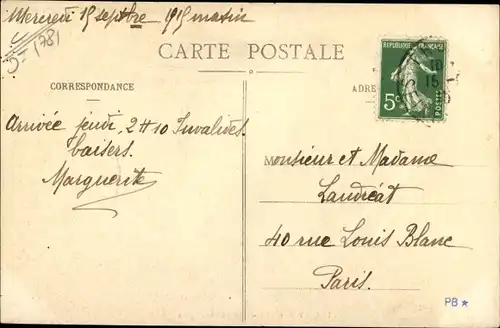 Mercredi 15 septbre 1915 matin
CARTE POSTALE
CORRESPONDANCE
ADRE
RÉPUBLIQUE FRANÇAISE
5c
POSTES
15
Arrivée jeudi, 2H10 Invalides.
baisers.
Marguerite
Monsieur et Madame
Laudréat
40 rue Louis Blanc
Paris.
PB